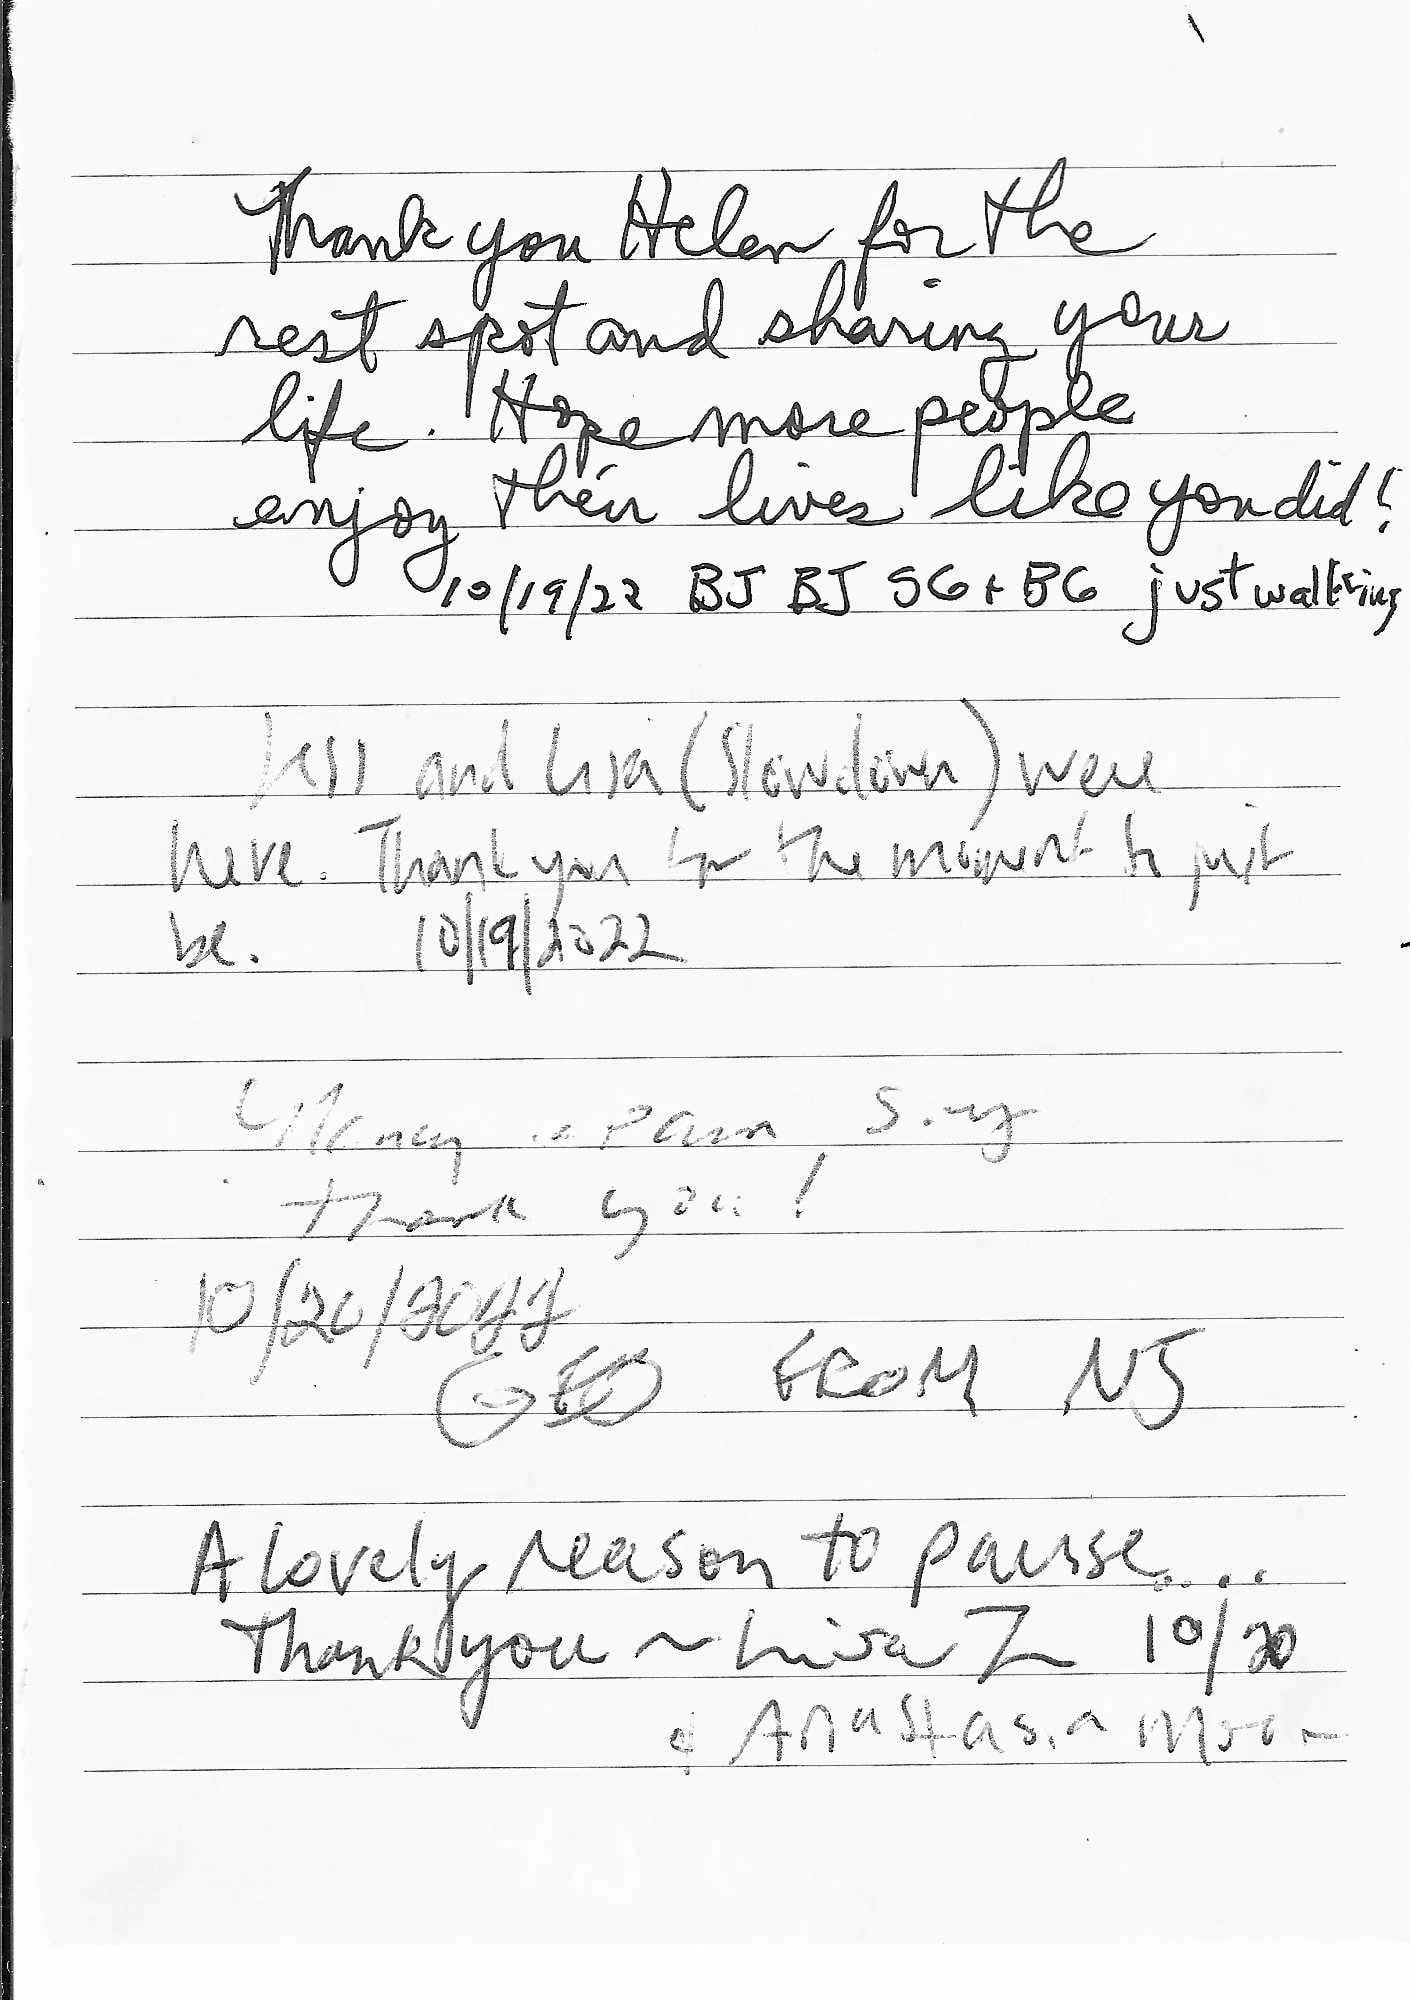 Thank you Helen for the
rest spot and sharing your
life. Hope more people
enjoy their lives like you did!
10/19/22 BJ BJ SG + BG just walking
Jess and Lisa (Slowdown) were
here. Thank you for the moment to just
be. 10/19/2022
Pam Say
thank you!
10/20/2022
GEO FROM NJ
A lovely reason to pausse....
Thank you ~ Lisa Z 10/20
& Anastasia